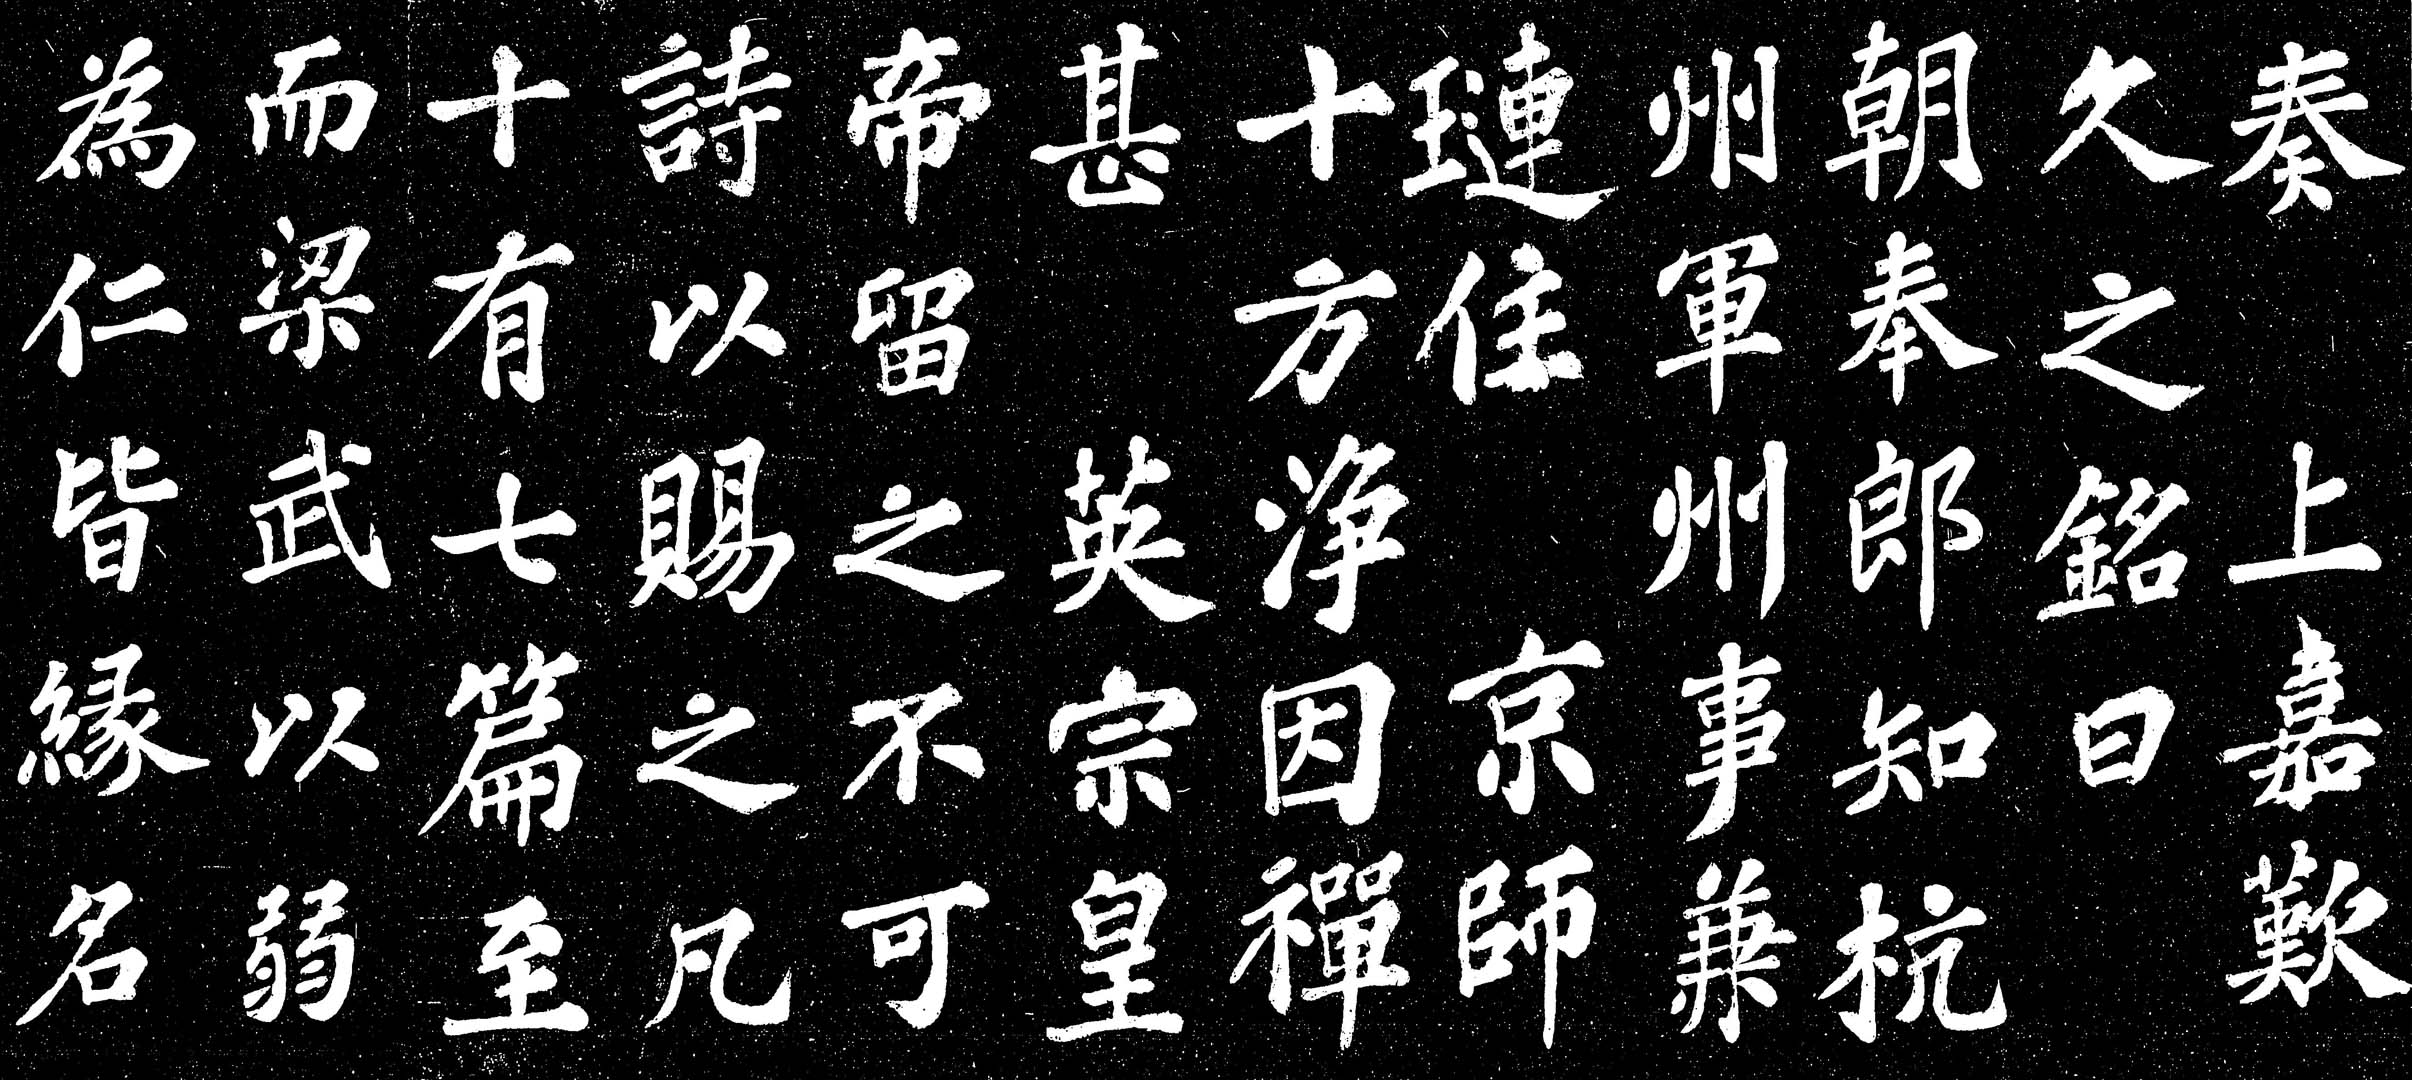 奏上嘉歎
久之銘曰
朝奉郎知杭
州軍州事兼
璉住京師
十方淨因禪
甚英宗皇
帝留之不可
詩以賜之凡
十有七篇至
而梁武以弱
為仁皆緣名